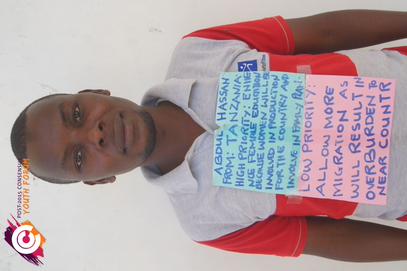 ABDUL HASSAN
FROM: TANZANIA
HIGH PRIORITY: ENHE
NCE FEMALE EDUCATION
BECAUSE WOMEN WILL BE
INVOLVED IN PRODUCTION
FOR THE COUNTRY AND
INVOLVE IN FAMILY
LOW PRIORITY:
ALLOW MORE
MIGRATION AS
WILL RESULT IN
OVERBURDEN TO
NEAR COUNTR
POST-2015 CONSENSUS
YOUTH FORUM